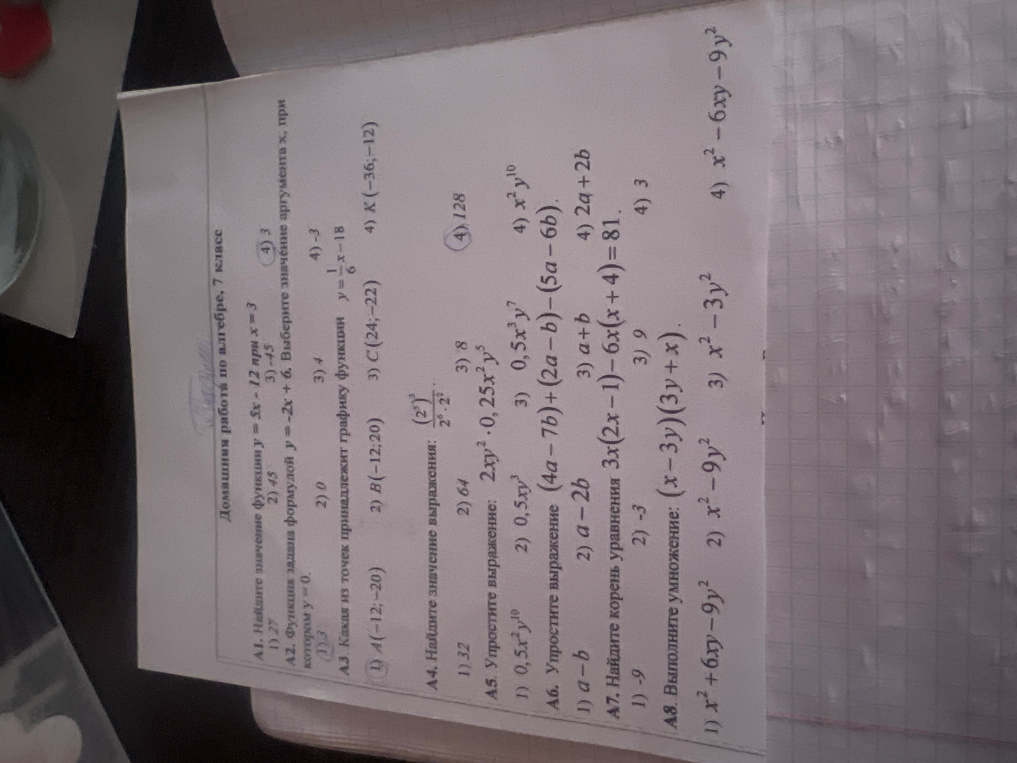 Домашняя работа по алгебре, 7 класс
А1. Найдите значение функции y = 5x - 12 при x = 3
1) 27 2) 45 3) -45 4) 3
А2. Функция задана формулой y = -2x + 6. Выберите значение аргумента x, при
котором y = 0.
1) 3 2) 0 3) 4 4) -3
А3. Какая из точек принадлежит графику функции y = 1/6 x – 18
1) A(−12;−20) 2) B(−12;20) 3) C(24;−22) 4) K(−36;−12)
А4. Найдите значение выражения: (2⁵)³ / 2⁶ · 2² .
1) 32 2) 64 3) 8 4) 128
А5. Упростите выражение: 2xy² · 0,25x²y⁵
1) 0,5x²y¹⁰ 2) 0,5xy³ 3) 0,5x³y⁷ 4) x²y¹⁰
А6. Упростите выражение (4a − 7b) + (2a − b) − (5a − 6b).
1) a − b 2) a − 2b 3) a + b 4) 2a + 2b
А7. Найдите корень уравнения 3x(2x − 1) − 6x(x + 4) = 81.
1) -9 2) -3 3) 9 4) 3
А8. Выполните умножение: (x − 3y)(3y + x).
1) x² + 6xy − 9y² 2) x² − 9y² 3) x² − 3y² 4) x² − 6xy − 9y²